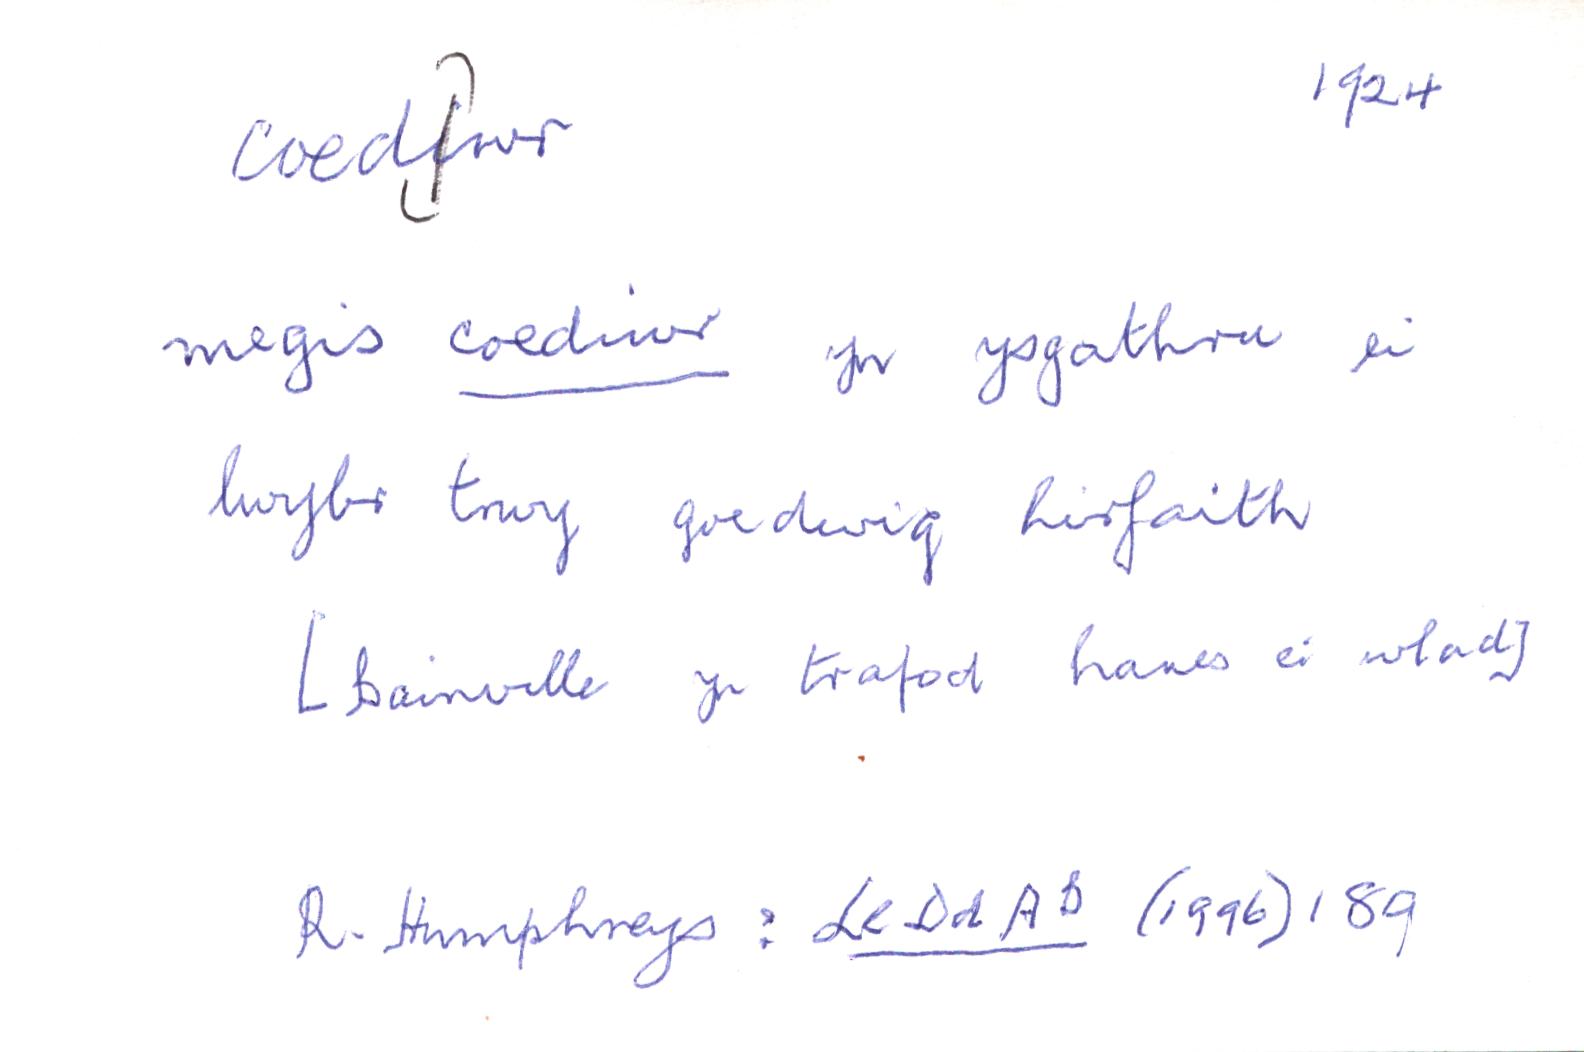 coediwr 1924
megis coediwr yn ysgathru ei
lwybr trwy goedwig hirfaith
[Bainville yn trafod hanes ei wlad]
R. Humphreys: Ll Dd A B (1996) 189